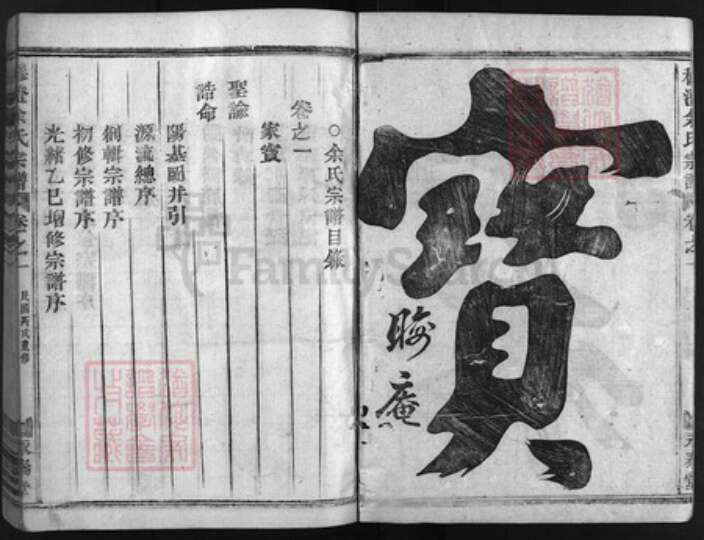 寳
晦庵
○余氏宗譜目錄
卷之一
家寳
聖諭
誥命
陽基圖并引
源流總序
創輯宗譜序
初修宗譜序
光緒乙巳增修宗譜序
余氏宗譜
卷之一
民國丙戌重修
FamilySearch